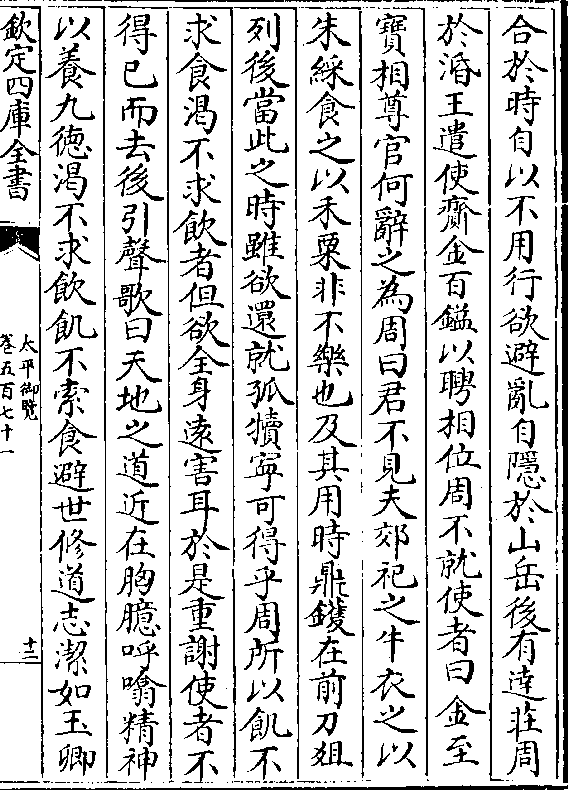 合於時自以不用行欲避亂自隱於山岳後有達莊周
於湣王遣使齎金百鎰以聘相位周不就使者曰金至
寳相尊官何辭之為周曰君不見夫郊祀之牛衣之以
朱綵食之以禾粟非不樂也及其用時鼎鑊在前刀俎
列後當此之時雖欲還就孤犢寧可得乎周所以飢不
求食渴不求飲者但欲全身遠害耳於是重謝使者不
得已而去後引聲歌曰天地之道近在胸臆呼噏精神
以養九德渴不求飲飢不索食避世修道志潔如玉卿
欽定四庫全書
太平御覽
卷五百七十一
十三